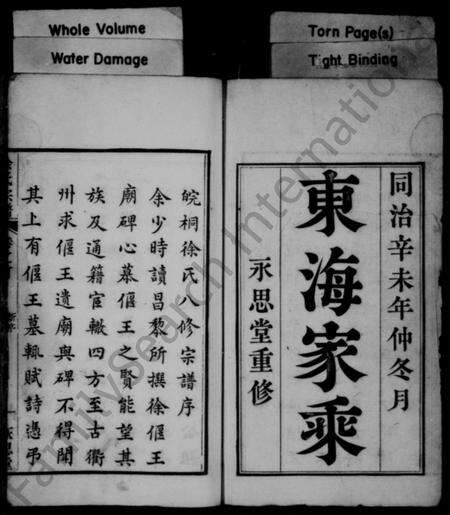 Whole Volume
Water Damage
Torn Page(s)
Tight Binding
同治辛未年仲冬月
東海家乘
永思堂重修
皖桐徐氏八修宗譜序
余少時讀昌黎所撰徐偃王
廟碑心慕偃王之賢能望其
族及通籍宦轍四方至古衢
州求偃王遺廟與碑不得聞
其上有偃王墓輒賦詩憑弔
FamilySearch International